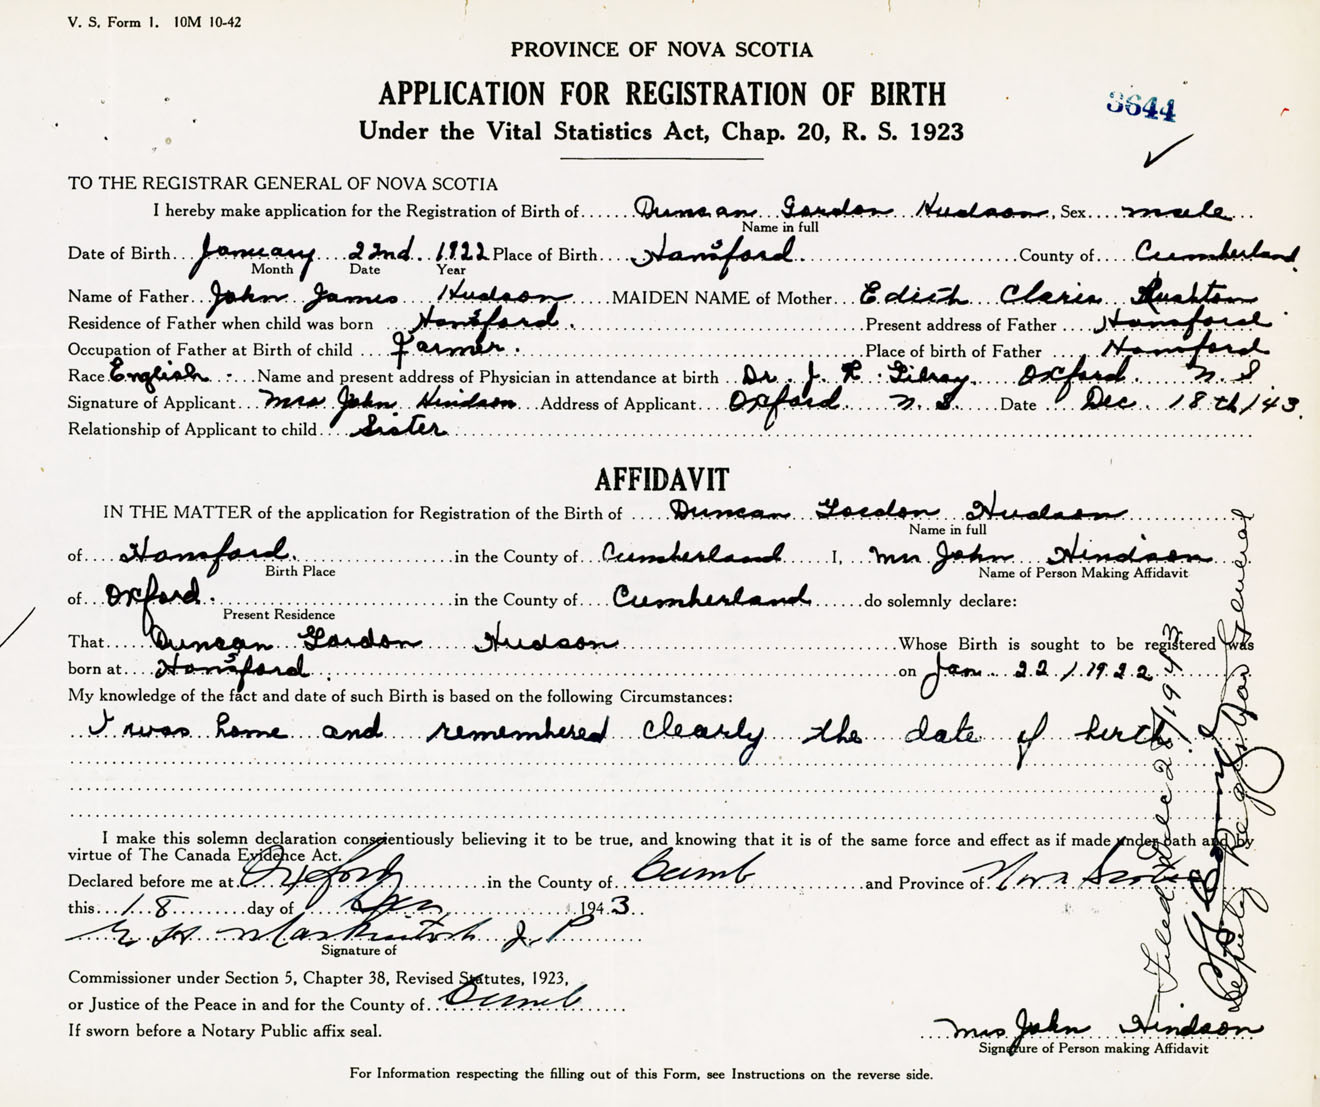 V. S. Form 1. 10M 10-42
PROVINCE OF NOVA SCOTIA
APPLICATION FOR REGISTRATION OF BIRTH
3644
Under the Vital Statistics Act, Chap. 20, R. S. 1923
TO THE REGISTRAR GENERAL OF NOVA SCOTIA
I hereby make application for the Registration of Birth of Duncan Gordon Hudson, Sex male
Name in full
Date of Birth January 22nd 1922 Place of Birth Hansford County of Cumberland
Month Date Year
Name of Father John James Hudson MAIDEN NAME of Mother Edith Claris Rushton
Residence of Father when child was born Hansford. Present address of Father Hansford
Occupation of Father at Birth of child Farmer. Place of birth of Father Hansford
Race English Name and present address of Physician in attendance at birth Dr. J. R. Gilroy Oxford N. S.
Signature of Applicant Mrs John Hindson Address of Applicant Oxford N. S. Date Dec. 18th/43.
Relationship of Applicant to child Sister
AFFIDAVIT
IN THE MATTER of the application for Registration of the Birth of Duncan Gordon Hudson
Name in full
of Hansford. in the County of Cumberland I, Mrs John Hindson
Birth Place Name of Person Making Affidavit
of Oxford. in the County of Cumberland do solemnly declare:
Present Residence
That Duncan Gordon Hudson Whose Birth is sought to be registered was
born at Hansford. on Jan. 22/1922
My knowledge of the fact and date of such Birth is based on the following Circumstances:
I was home and remembered clearly the date of birth.
I make this solemn declaration conscientiously believing it to be true, and knowing that it is of the same force and effect as if made under oath and by
virtue of The Canada Evidence Act.
Declared before me at Oxford in the County of Cumb and Province of Nova Scotia
this 18 day of Dec 1943
MacKintosh J. P
Signature of
Commissioner under Section 5, Chapter 38, Revised Statutes, 1923,
or Justice of the Peace in and for the County of Cumb
If sworn before a Notary Public affix seal.
Mrs John Hindson
Signature of Person making Affidavit
For Information respecting the filling out of this Form, see Instructions on the reverse side.
Filed Dec 28/1943
Deputy Registrar General